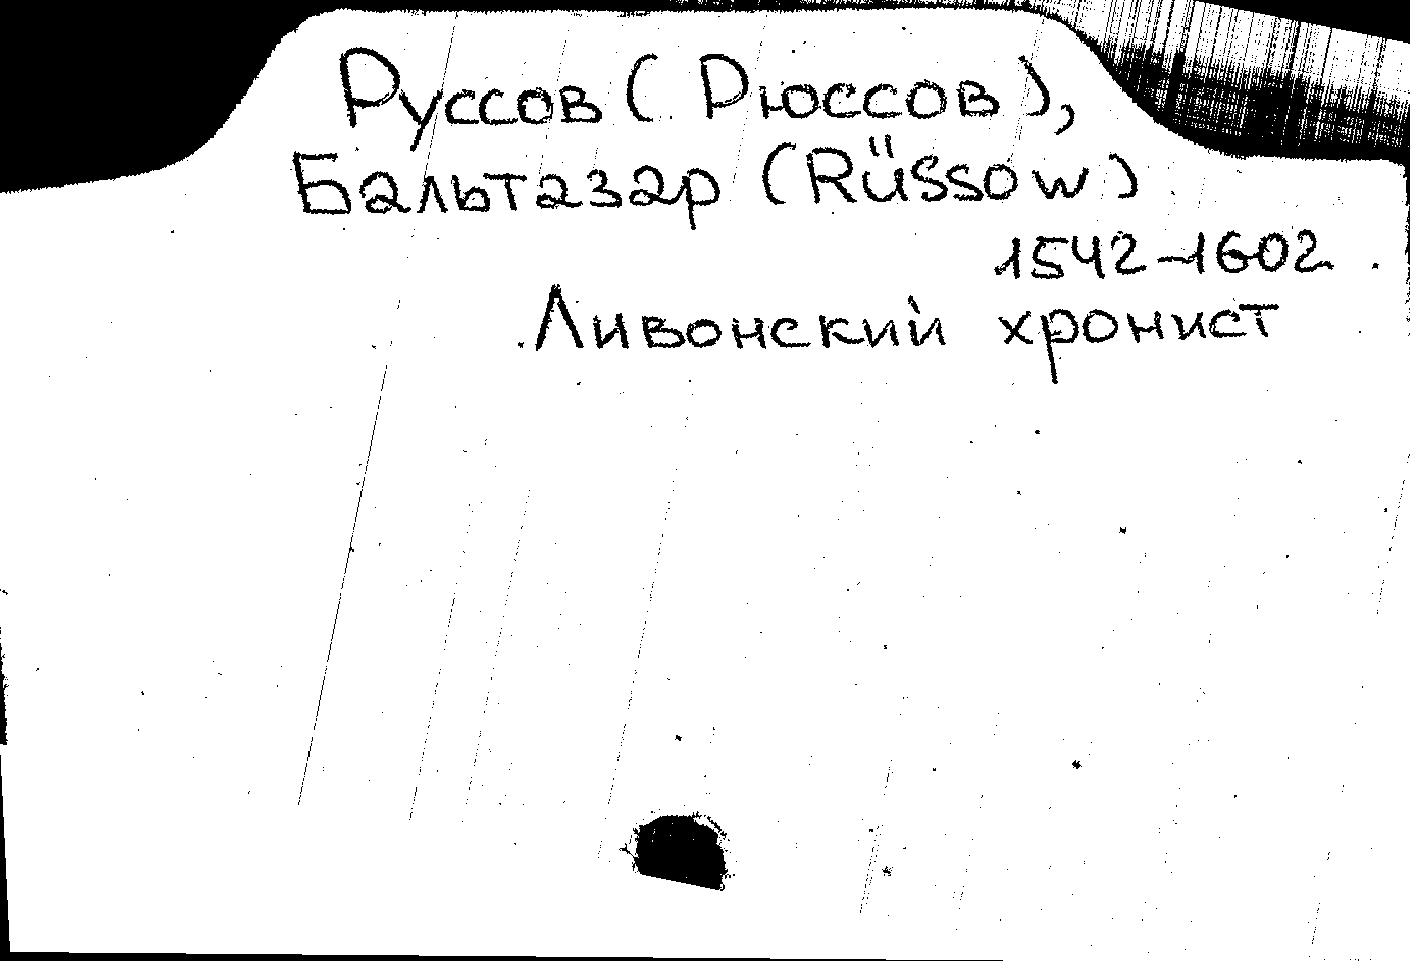 Руссов (Рюссов),
Бальтазар (Rüssow)
1542-1602.
Ливонский хронист